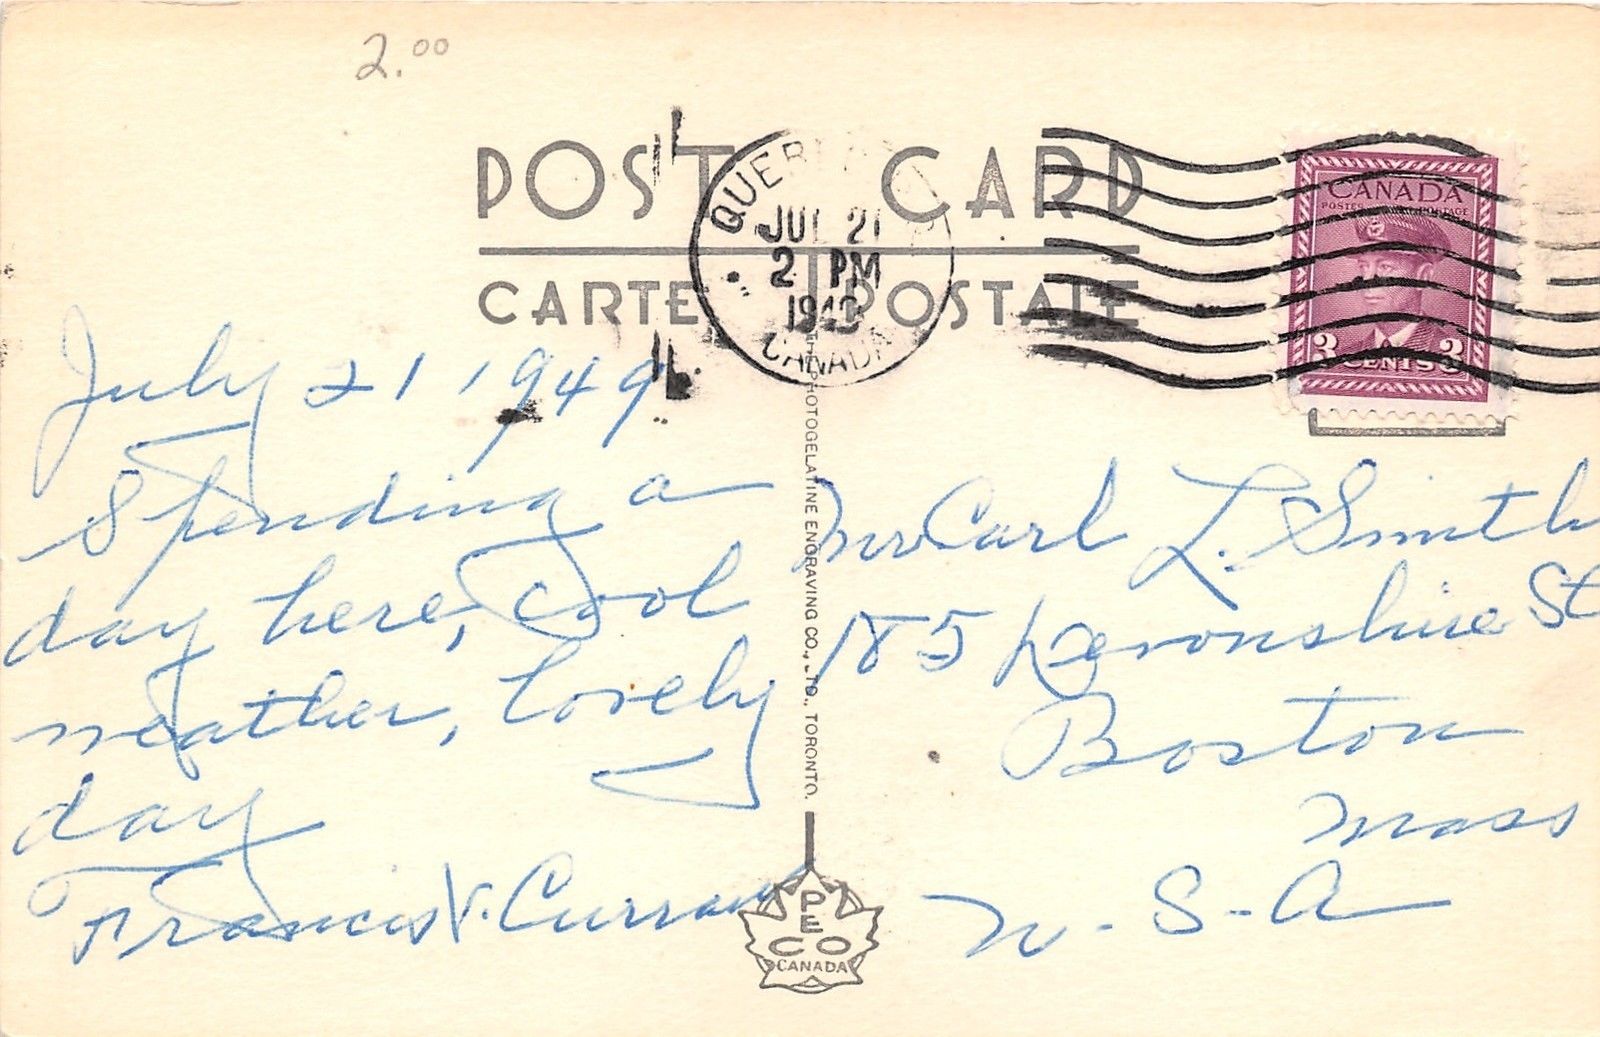 2.00
POST CARD
CARTE POSTALE
JUL 21
2 PM
1949
CANADA
CANADA
POSTES POSTAGE
3 CENTS 3
July 21, 1949
Spending a
day here, cool
weather, lovely
day
Francis V. Curran
PHOTOGELATINE ENGRAVING CO., LTD., TORONTO.
Mr Carl L. Smith
185 Devonshire St
Boston
Mass
U.S.A
PECO
CANADA